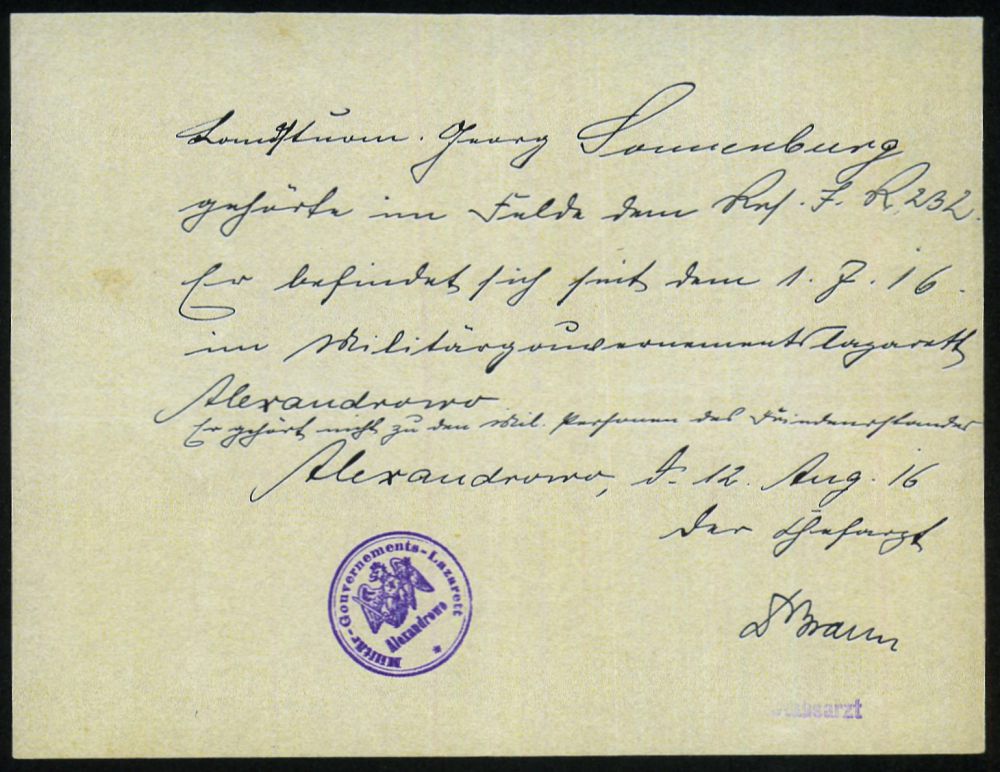 Landsturm. Georg Sonnenburg
gehörte im Felde dem Res. J. R. 232.
Er befindet sich seit dem 1. 7. 16.
im Militärgouvernementslazarett
Alexandrowo
Er gehört nicht zu den Mil. Personen des Friedensstandes
Alexandrowo, d. 12. Aug. 16
Der Chefarzt
Dr Braun
Militär-Gouvernements-Lazarett
Alexandrowo
*
Stabsarzt